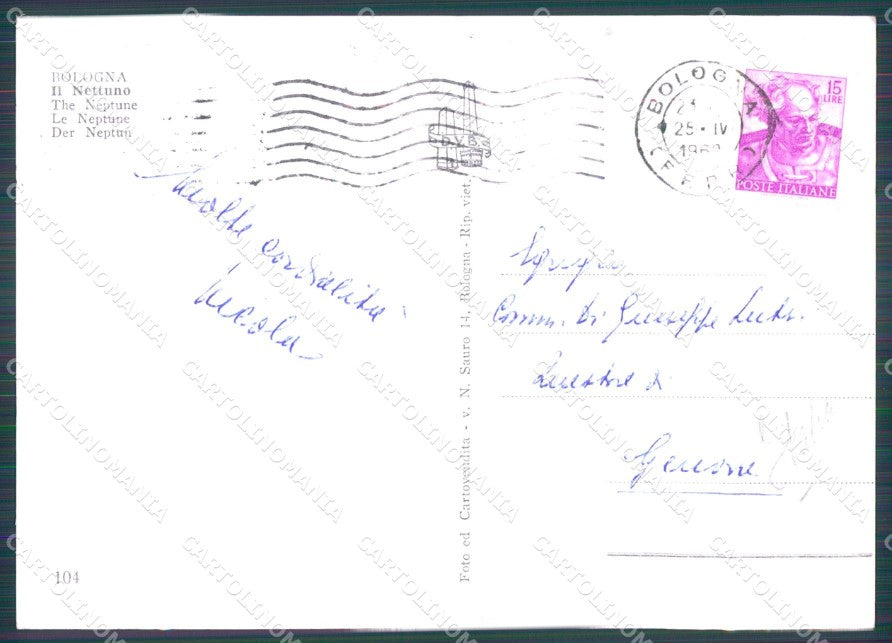 BOLOGNA
Il Nettuno
The Neptune
Le Neptune
Der Neptun
Molte cordialità
Nicola
104
Foto ed Cartovendita - v. N. Sauro 14, Bologna - Rip. viet.
BOLOGNA
25 - IV
15
LIRE
POSTE ITALIANE
Comm. Dr Giuseppe
Questore di
Genova
CARTOLINOMANIA